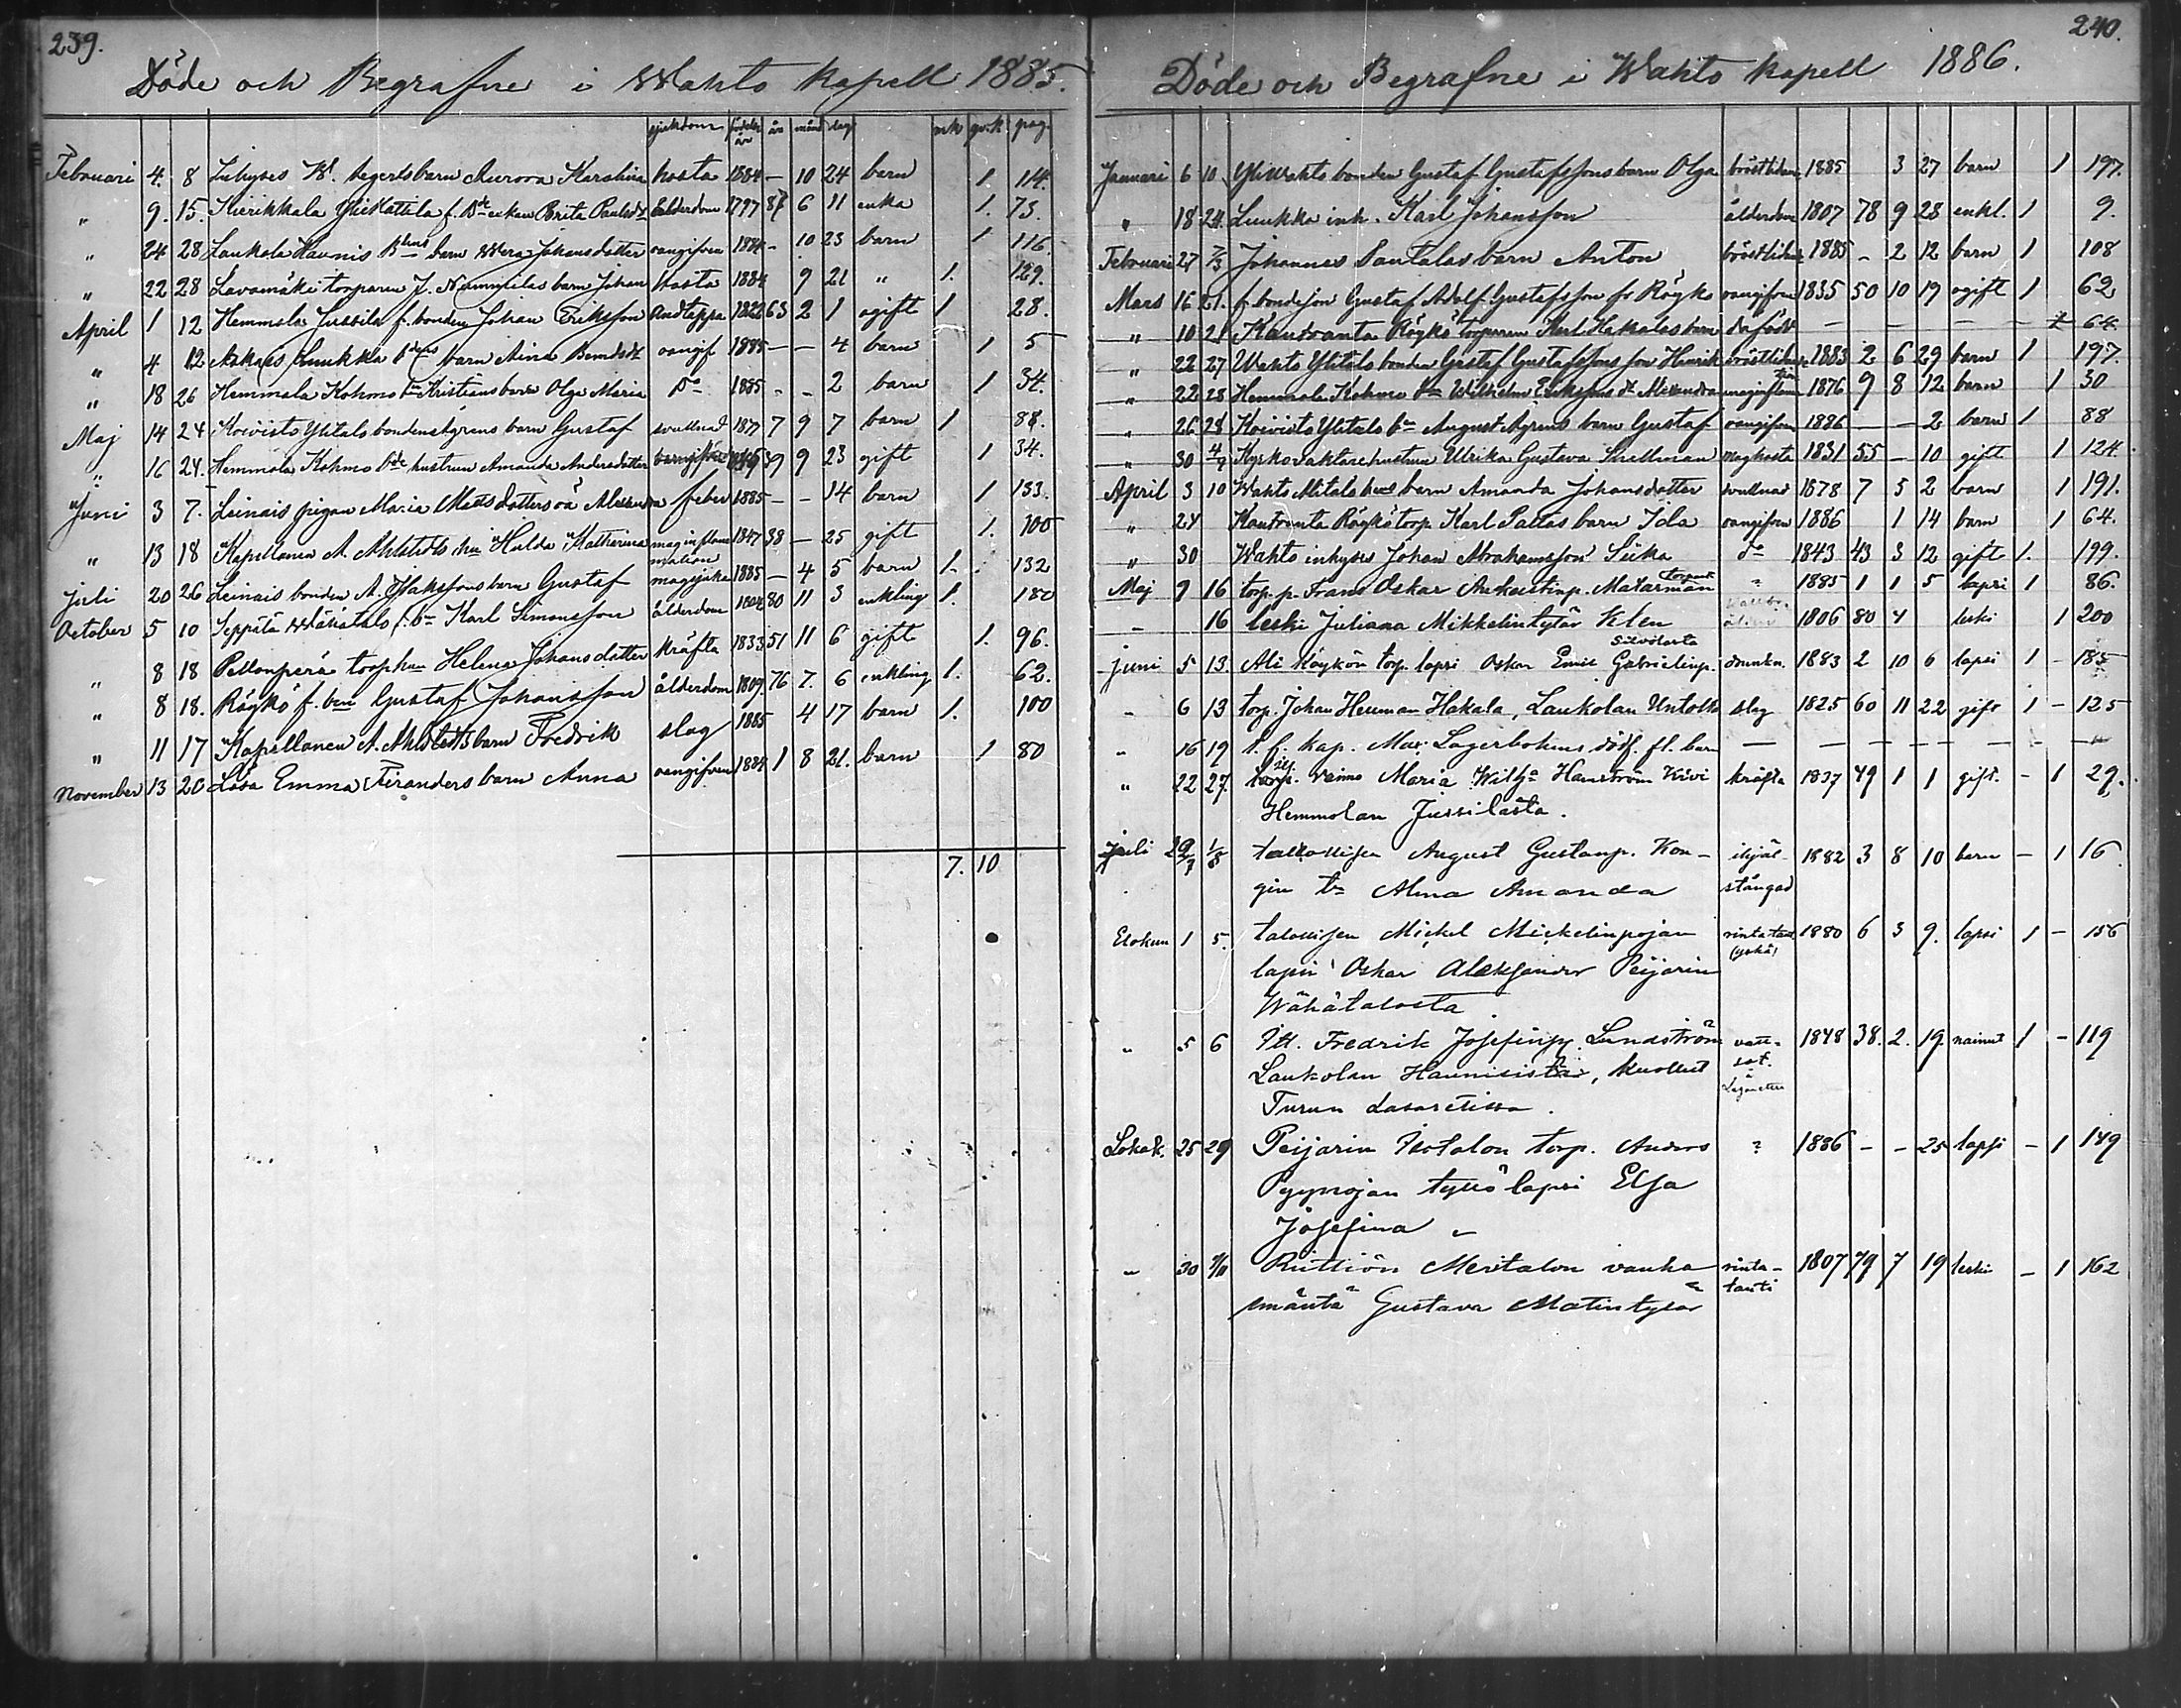 239.
Döde och Begrafne i Wahto Kapell 1885.
sjukdom födelse år år månd dag mk qv.k pag.
Februari 4. 8 barn Aurora Karolina hosta 1884 - 10 24 barn 1. 114.
" 9. 15. Kierikkala f. enkan Brita ålderdom 1797 87 6 11 enka 1. 73.
" 24 28 Laukola Haunis barn Wera Johansdotter oangifven 1884 - 10 23 barn 1 116
" 22 28 Lavamäki torparen J. barn Johan hosta 1884 9 21 " 1. 129.
April 1 12 Hemmola Jussila f. bonden Johan Eriksson andtäppa 1822 63 2 1 ogift 1 28.
" 4 12 barn Aina oangif 1885 - - 4 barn 1 5
" 18 26 Hemmola Kohmo Kristians barn Olga Maria Do 1885 - - 2 barn 1 34.
Maj 14 24 Koivisto Ylitalo bonden Ågrens barn Gustaf svullnad 1877 7 9 7 barn 1 88.
" 16 24. Hemmola Kohmo hustrun Amanda Andersdotter 39 9 23 gift 1 34.
Juni 3 7. Leinais pigan Maria Mattsdotters oä Alexandra feber 1885 - - 14 barn 1 133.
" 13 18 Kapellanen A. Ahlstedts hu Hulda Katharina maginflam 1847 38 - 25 gift 1. 100
mation
Juli 20 26 Leinais bonden A. Isakssons barn Gustaf magsjuka 1885 - 4 5 barn 1. 132
October 5 10 Seppälä Wähätalo f. bn Karl Simonsson ålderdom 1804 80 11 3 enkling 1. 180
" 8 18 Pellonperä torp hun Helena Johansdotter kräfta 1833 51 11 6 gift 1. 96.
" 8 18. Röykö f. bn Gustaf Johansson ålderdom 1809. 76 7. 6 enkling 1. 62.
" 11 17 Kapellanen A. Ahlstedts barn Fredrik slag 1885 4 17 barn 1. 100
November 13 20 Lösa Emma Feranders barn Anna oangifven 1884 1 8 21. barn 1 80
7. 10
240.
Döde och Begrafne i Wahto Kapell 1886.
Januari 6 10 Yliwahto bonden Gustaf Gustafssons barn Olga bröstlidan 1885 3 27 barn 1 197.
" 18 24 Luukka inh. Karl Johansson ålderdom 1807 78 9 28 enkl. 1 9.
Februari 27 7/3 Johannes Pantalas barn Anton bröstlidan 1885 - 2 12 barn 1 108
Mars 16 21. f. bondeson Gustaf Adolf Gustafsson fr Röykö oangifven 1835 50 10 19 ogift 1 62
" 10 21 Kautvanta Röykö torparen Karl Hakalas barn dödfödt - - - - - 1 64.
" 22 27 Wahto Ylitalo bonden Gustaf Gustafssons son Henrik bröstlidan 1883 2 6 29 barn 1 197
" 22 28 Hemmola Kohmo bn Wilhelm Erikssons dr Alexandra maginflam 1876 9 8 12 barn 1 30
" 26 28 Koivisto Ylitalo bn August Ågrens barn Gustaf oangifven 1886 - - 2 barn 1 88
" 30 4/4 Kyrkovaktarehustrun Ulrika Gustava maghosta 1831 55 - 10 gift 1 124.
April 3 10 Wahto Alitalo barn Amanda Johansdotter svullnad 1878 7 5 2 barn 1 191.
" 24 Kautvanta Röykö torp. Karl Pallas barn Ida oangifven 1886 1 14 barn 1 64.
" 30 Wahto inhyses Johan Abrahamsson Siika do 1843 43 3 12 gift 1. 199.
Maj 9 16 torp. p. Frans Oskar Aukustinp. Matarmaa " 1885 1 1 5 lapsi 1 86.
" 16 leski Juliana Mikkelintytär Klen 1806 80 4 leski 1 200
Juni 5 13. Ali Röykön torp. lapsi Oskar Emil Gabrielinp. drunkn. 1883 2 10 6 lapsi 1 - 185
" 6 13 torp. Johan Herman Hakala, Laukolan Untolta slag 1825 60 11 22 gift 1 - 125
" 16 19 t. f. kap. Max Lagerbohms dödf. fl. barn - - - - - - - -
" 22 27. vaimo Maria Wilh:a Hanström Kivi kräfta 1837 49 1 1 gift. - 1 29.
Hemmolan Jussilasta.
Juli 29/7 1/8 talollisen August Gustavp. Kon- ihjäl- 1882 3 8 10 barn - 1 16.
gin tr Alma Amanda stångad
Elokuu 1 5. talollisen Mickel Mickelinpojan rintataut 1880 6 3 9. lapsi 1 - 156
lapsi Oskar Aleksander Peijarin (yskä)
Wähätalosta
" 5 6 Itl. Fredrik Josefinp. Lundström 1848 38. 2. 19. nainut 1 - 119
Laukolan Haunisista, kuollut
Turun Lasaretissa.
Lokak. 25 29 Peijarin Isotalon torp. Anders ? 1886 - - 25 lapsi - 1 149
Pyynojan tyttölapsi Elsa
Josefina
" 30 7/11 Ruttiön Meritalon vanha rinta- 1807 79 7 19 leski - 1 162
emäntä Gustava Matintytär tauti